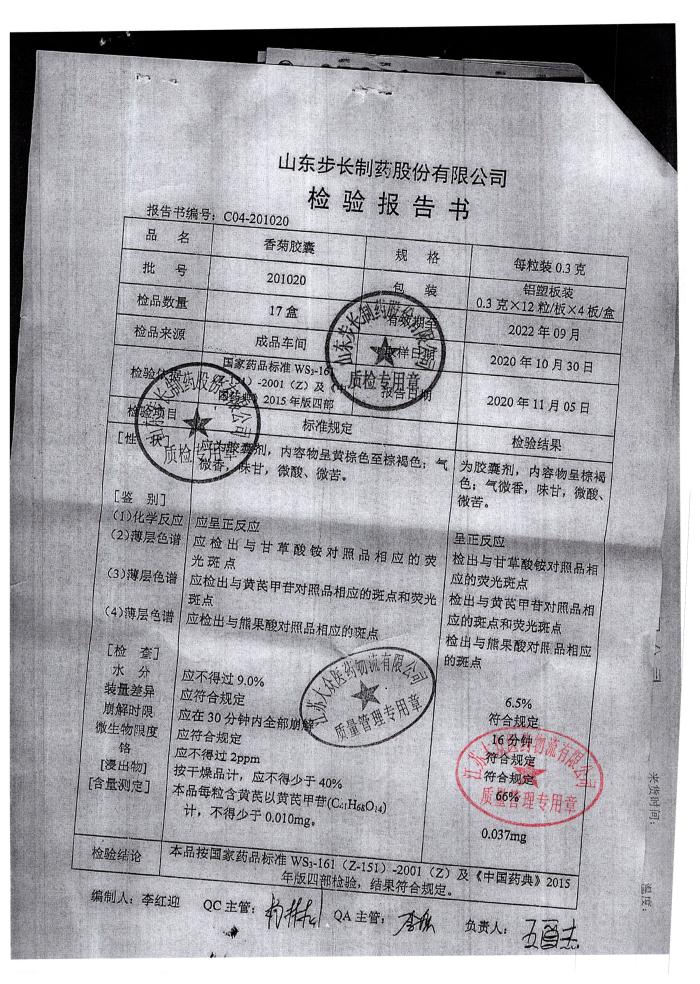 山东步长制药股份有限公司
检验报告书
报告书编号：C04-201020
品 名 香菊胶囊 规 格 每粒装0.3克
批 号 201020 包 装 铝塑板装
0.3克×12粒/板×4板/盒
检品数量 17盒 有效期至 2022年09月
检品来源 成品车间 取样日期 2020年10月30日
检验依据 国家药品标准WS₃-161
-2001（Z）及《中
国药典》2015年版四部 报告日期 2020年11月05日
检验项目 标准规定 检验结果
[性 应为胶囊剂，内容物呈黄棕色至棕褐色；气
微香，味甘，微酸、微苦。
为胶囊剂，内容物呈棕褐
色；气微香，味甘，微酸、
微苦。
[鉴 别]
(1)化学反应 应呈正反应 呈正反应
(2)薄层色谱 应检出与甘草酸铵对照品相应的荧
光斑点
检出与甘草酸铵对照品相
应的荧光斑点
(3)薄层色谱 应检出与黄芪甲苷对照品相应的斑点和荧光
斑点
检出与黄芪甲苷对照品相
应的斑点和荧光斑点
(4)薄层色谱 应检出与熊果酸对照品相应的斑点
检出与熊果酸对照品相应
的斑点
[检 查]
水 分 应不得过9.0% 6.5%
装量差异 应符合规定 符合规定
崩解时限 应在30分钟内全部崩解 16分钟
微生物限度 应符合规定 符合规定
铬 应不得过2ppm 符合规定
[浸出物] 按干燥品计，应不得少于40% 66%
[含量测定] 本品每粒含黄芪以黄芪甲苷(C₄₁H₆₈O₁₄)
计，不得少于0.010mg。 0.037mg
检验结论 本品按国家药品标准WS₃-161（Z-151）-2001（Z）及《中国药典》2015
年版四部检验，结果符合规定。
编制人：李红迎 QC主管： QA主管： 负责人：
山东步长制药股份有限公司
质检专用章
山东步长制药股份有限公司
质检专用章
江苏大众医药物流有限公司
质量管理专用章
江苏大众医药物流有限公司
质量管理专用章
来货时间：
温度：